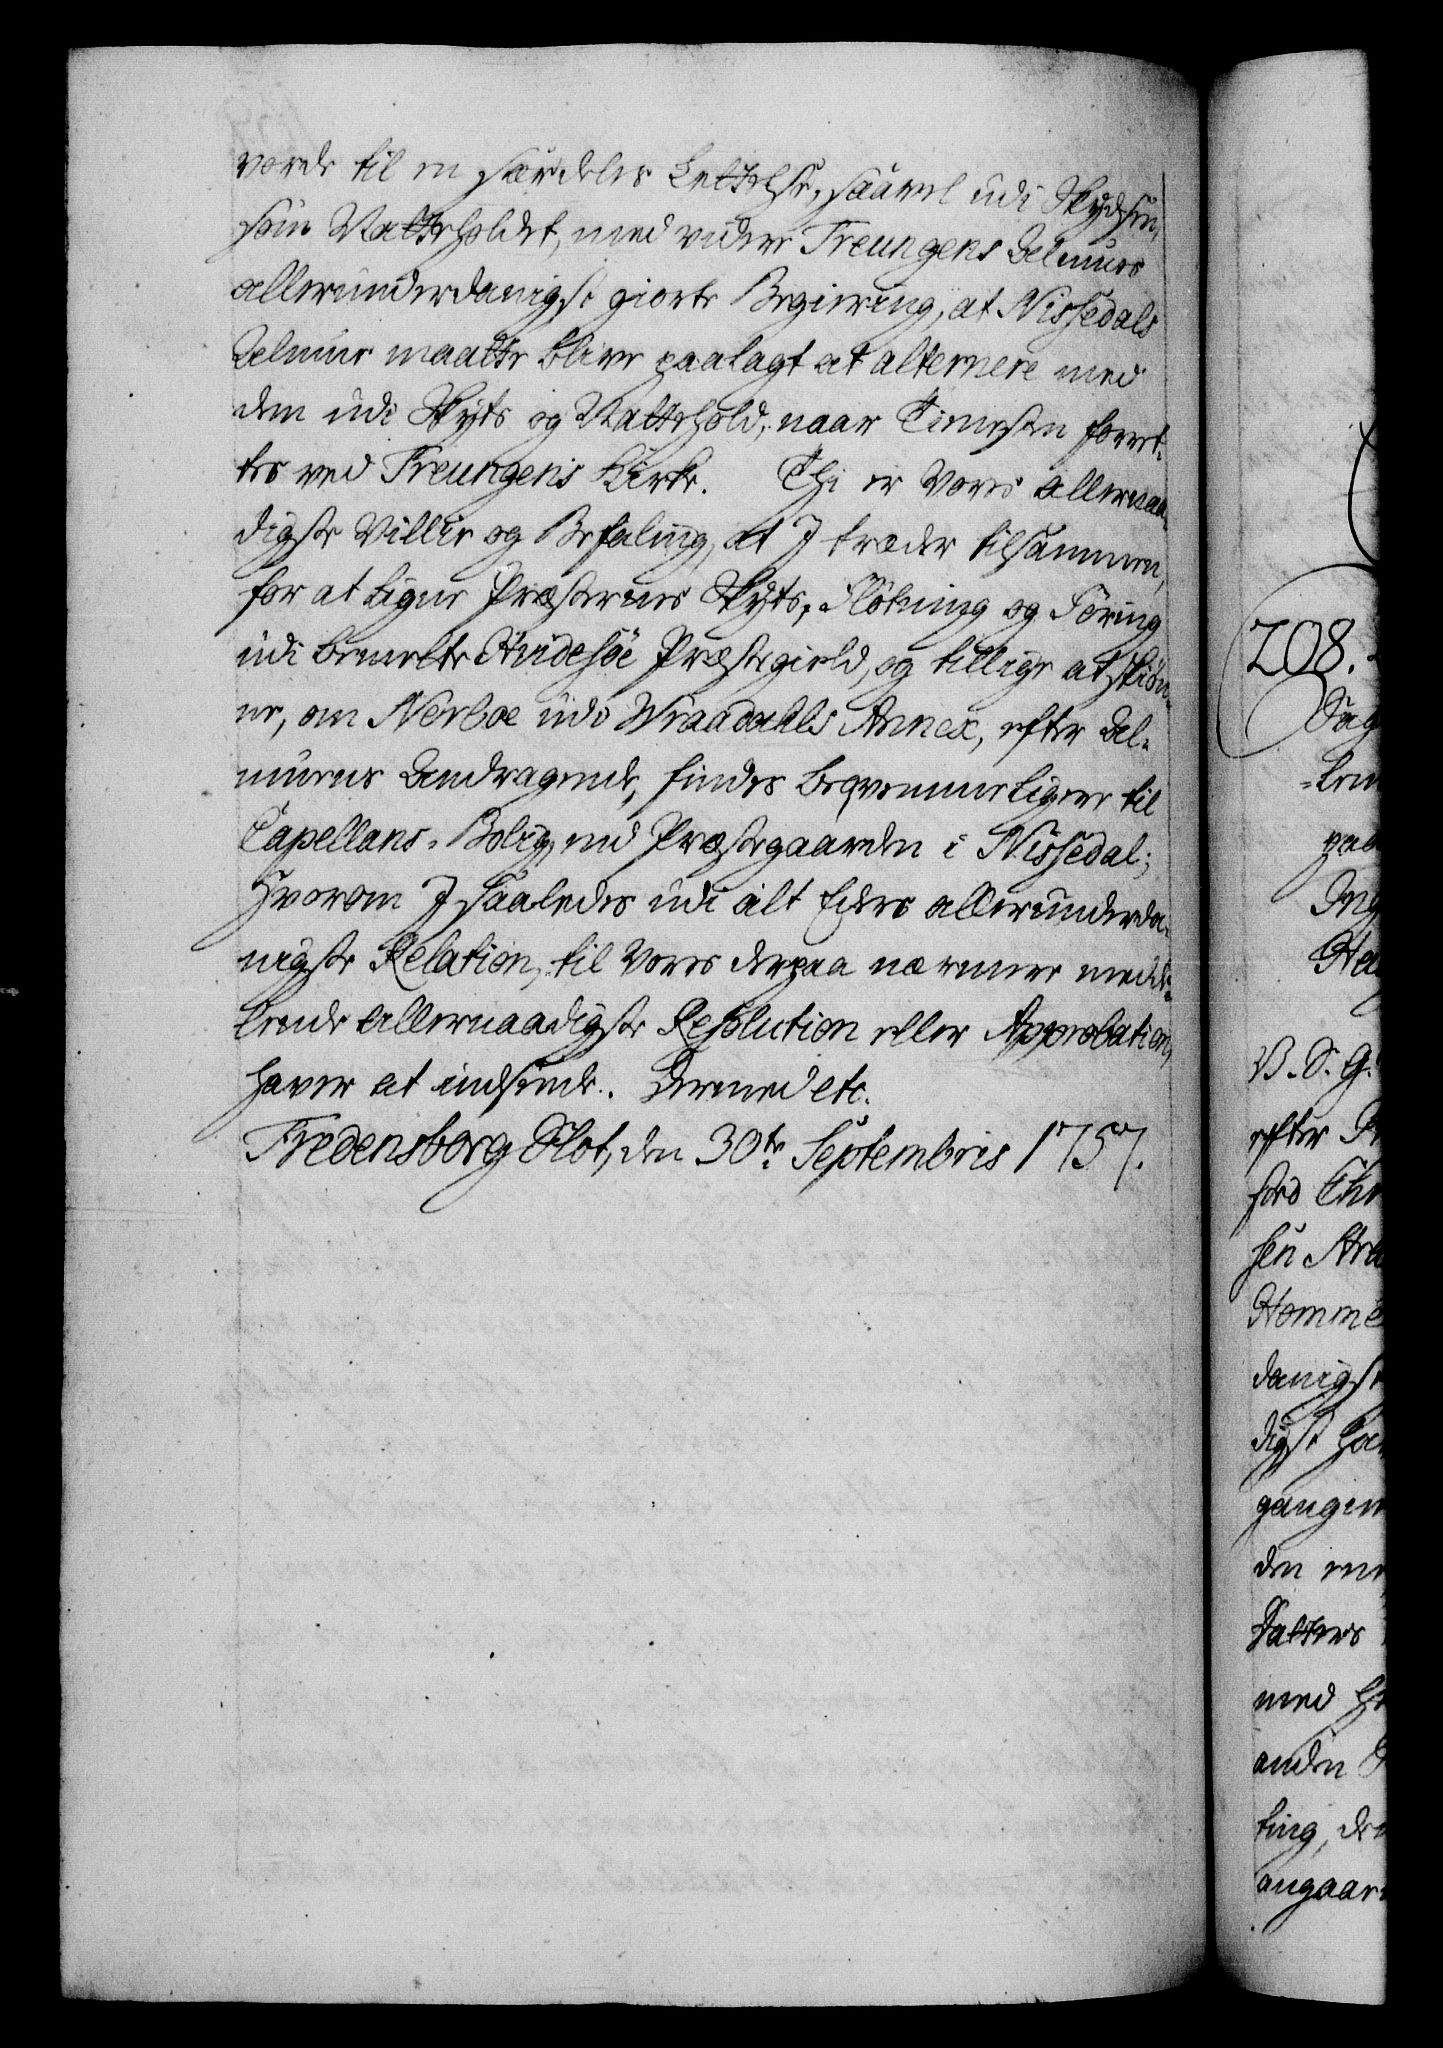 vorde til en særdeles Lettelse, saavel udi Skydsen,
som Natteholdet, med videre Treungens Almues
allerunderdanigst giorte Begiering, at Nissedals
Almue maatte blive paalagt at alternere med
dem udi Skyts og Nattehold, naar Tienesten forret-
tes ved Treungens Kirke. Thi er Vores allernaa-
digste Villie og Befaling, at I træder tilsammen,
for at ligne Præsternes Skyts, Fløtning og Føring
udi bemelte Hvidesøe Præstegield, og tillige at skiøn-
ne, om Nerboe udi Wraadahls Annex, efter Al-
muens Andragende, findes beqvemmeligere til
Capellans-Bolig, end Præstegaarden i Nissedal;
Hvorom I saaledes udi alt Eders allerunderda-
nigste Relation, til Vores derpaa nærmere medde-
lende allernaadigste Resolution eller Approbation,
haver at indsende. Dermed etc.
Fredensborg Slot, den 30te Septembris 1757.
208.
Sag
paa
Ing
V. S. G.
efter
ford Chr
sen
Homme
danigst
digst
gangen
den
med
anden
ting, de
angaar